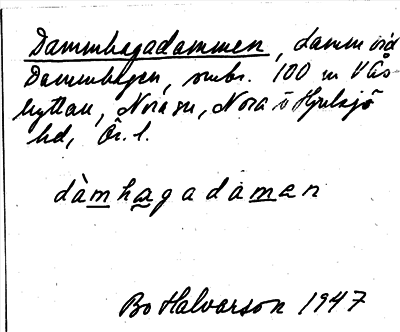 Dammhagadammen, damm vid
Dammhagen, smbr. 100 m V Ås
hyttan, Nora sn, Nora o Hjulsjö
hd, Ör. l.
dàmhagadåmen
Bo Halvarson 1947